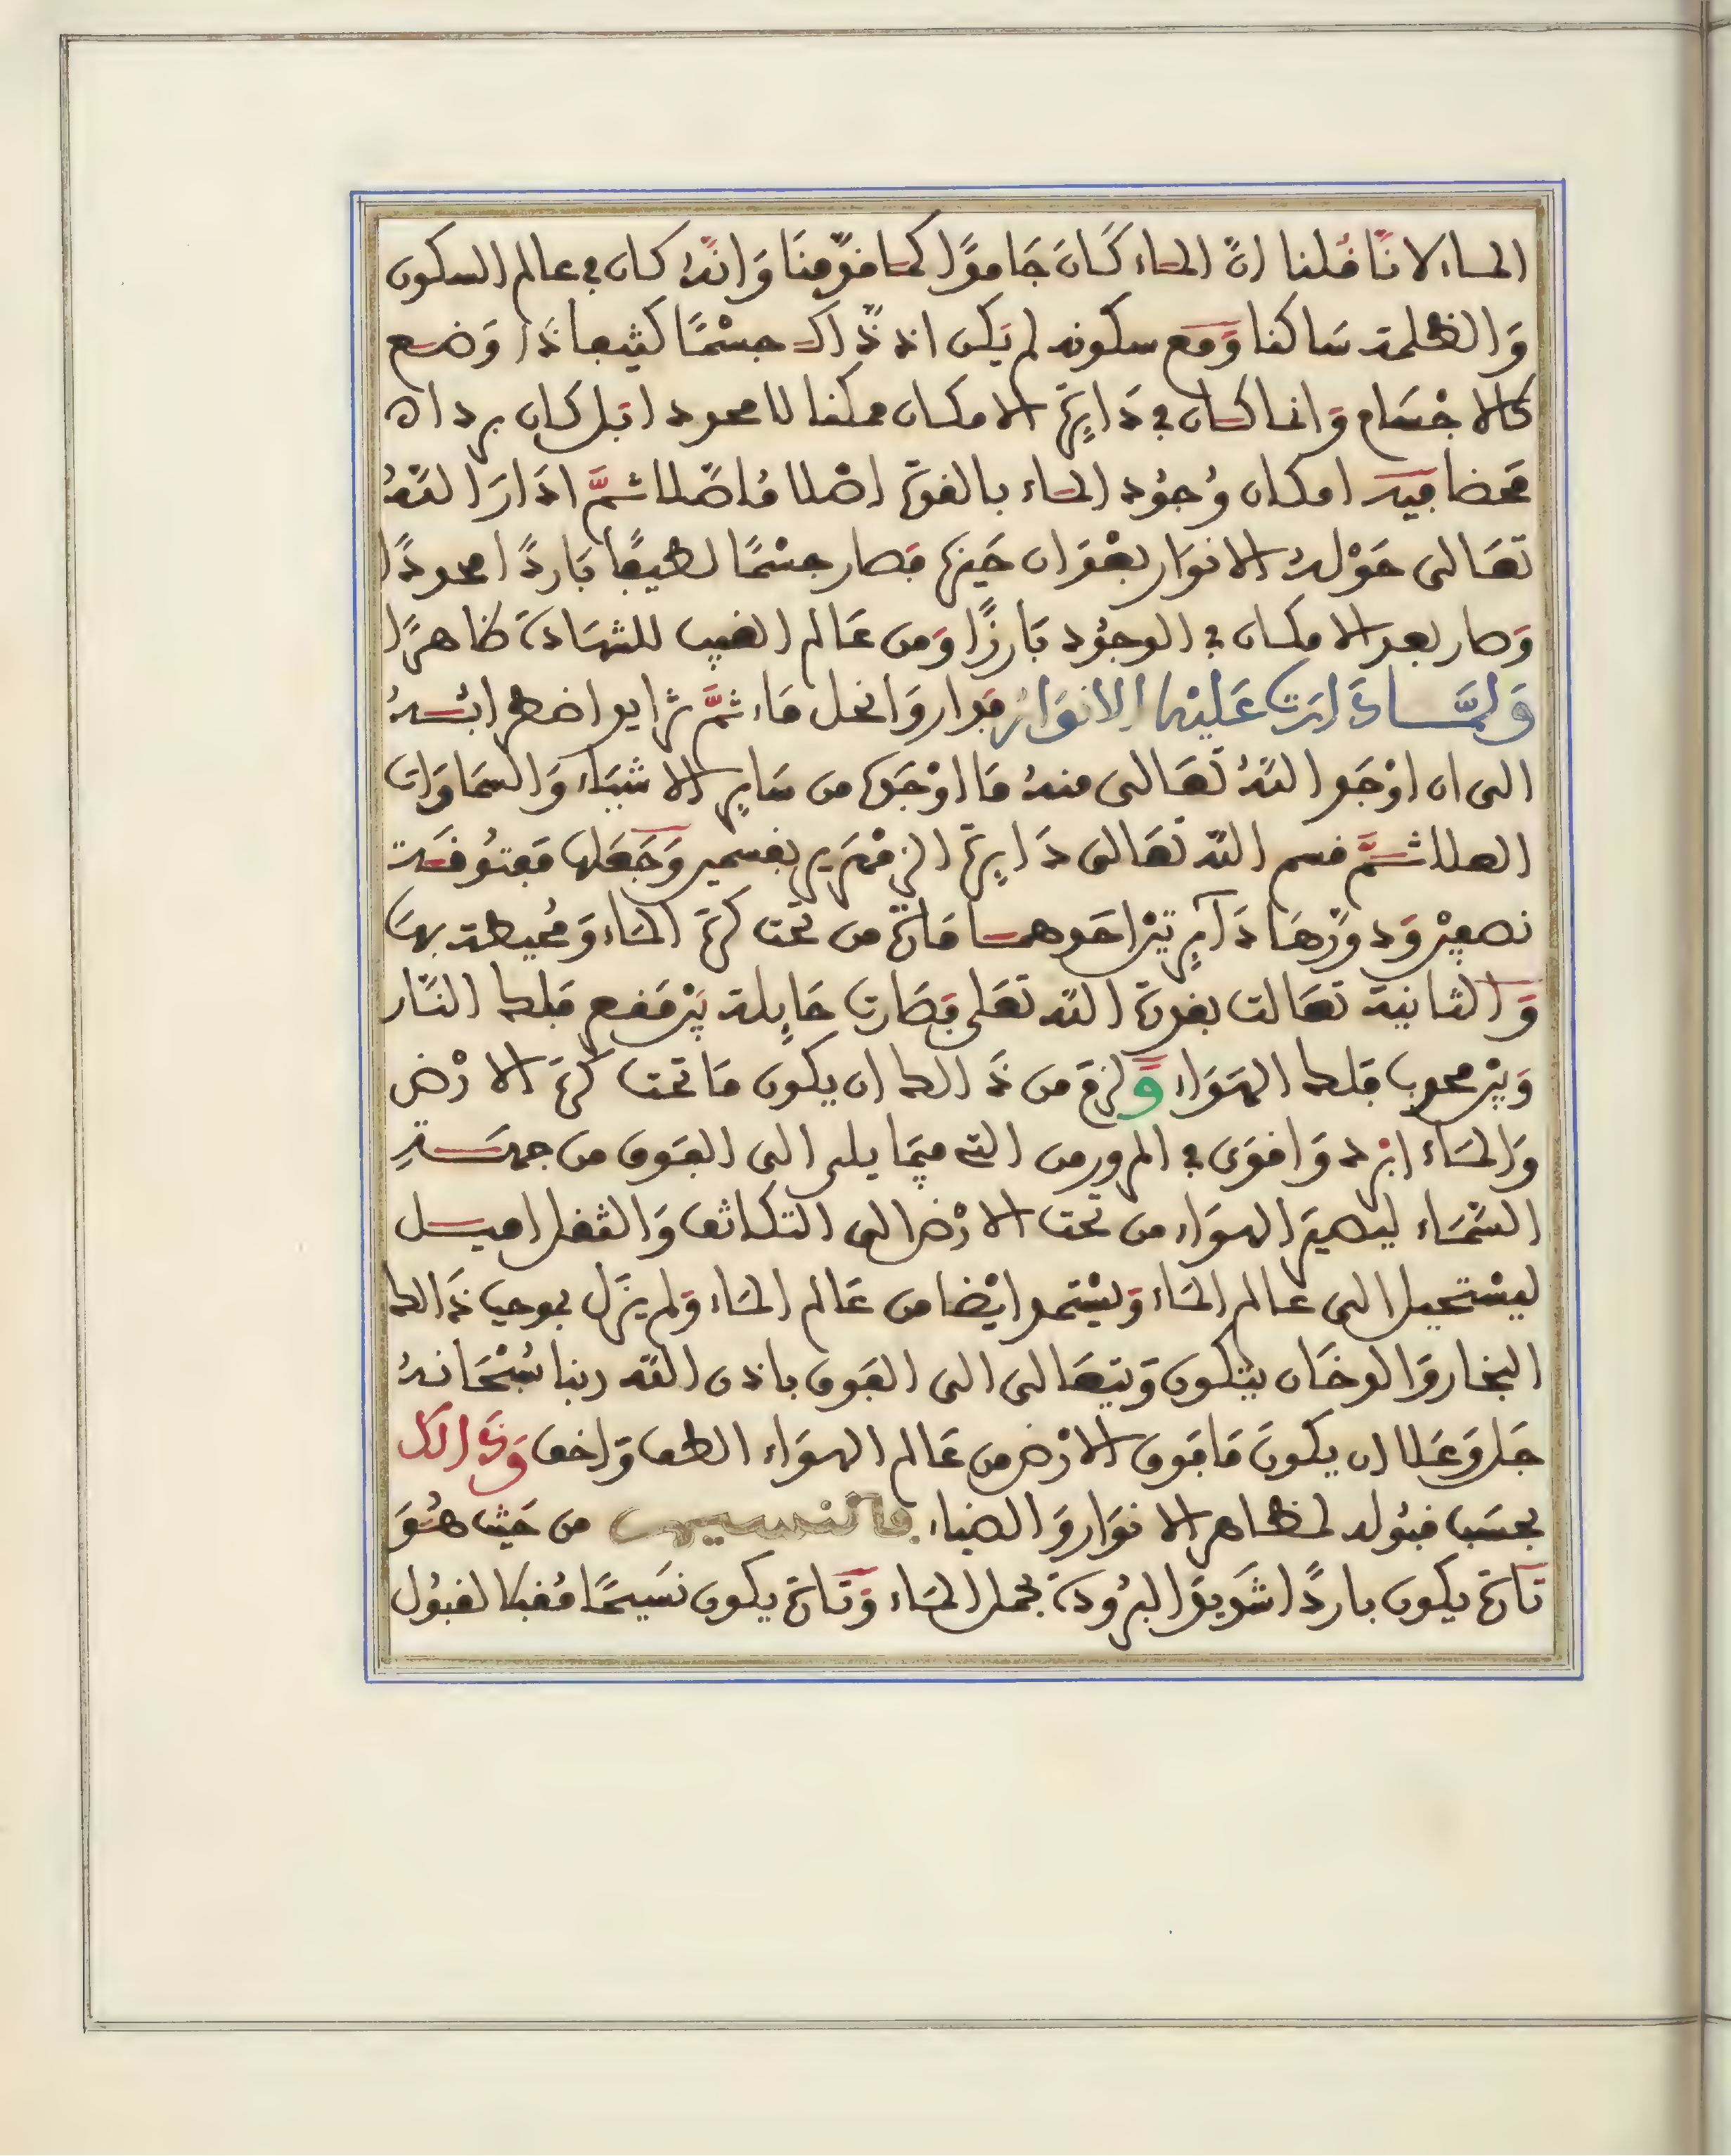 الماء لانّا قُلنا انّ الماء كَانَ جَامدًا كما قدّمنَا وَانّهُ كان في عالم السكون
وَالظلمة سَاكنا وَمع سكونه لم يَكن اذ ذّاك جسْمًا كثيفا ذَا وَضع
كالاجْسَام وَانما كان في دَايِرَة الامكان ممكنا لا محدودا بَل كان بردا
مَحضا فيه امكان وُجُود الماء بالقوّة اصْلا مُاصّلا ثمَّ ادَارَ اللّهُ
تعَالى حَوْلهُ الانوَار بعْدَ ان حَينها فصار جسْمًا لطيفًا بَاردًا محدودًا
وَصار بعد الامكان في الوجُود بَارزًا وَمن عَالم الغيب للشهَادَة ظاهرًا
وَلمَّا دَارَت عَليْها الانوَارُ فدار وَانحل مَاء ثمَّ تزايد اضطرابُهُ
الى ان اوْجَد اللّهُ تعَالى منهُ مَا اوْجَدَ من سَايرِ الاشيَاء وَالسمَاوَات
العلا ثمَّ قسم اللّه تعَالى دَايِرَة الزمْهَرير بقسمين وَجَعَلها مَفتُوقَة
نصفيْن وَدوّرهَا دَآيرتيْن احَدهما مَارّة من تحت كرَة المَاء وَمُحيطة بهَا
وَالثانية تعَالت بقدرَة اللّه تعَلى فصَارت حَايِلة بيْن مَقعر فلك النّار
وَبيْن محدب فلك الهوَاء وَلزمَ من ذَالك ان يكون مَا تحت كرَة الارْض
وَالمَاء ابْرد وَاقوَى في المرور من التي ممّا يلي الى الفوق من جهَةِ
السّمَاء ليصيرَ الهوَاء من تحت الارْض الى التكاثف وَالثقل اميل
ليسْتحيل الى عَالم المَاء وَيسْتمد ايْضا من عَالم المَاء وَلم يزَل بموجب ذَالك
البخار وَالدخَان يتكون وَيتعَالى الى الفوق باذن اللّه ربنا سُبْحَانهُ
جَل وَعَلا ان يكونَ مَا فوق الارْض من عَالم الهوَاء الطف وَاخف وَذَالك
بحسَب قبُوله لمظاهر الانوَار وَالضياء فالنسيم من حَيث هُوَ
تَارَة يكون باردًا شَديدَ البرُودَة بحمل المَاء وَتَارَة يكون نَسيمًا مُقبلا لقبُول